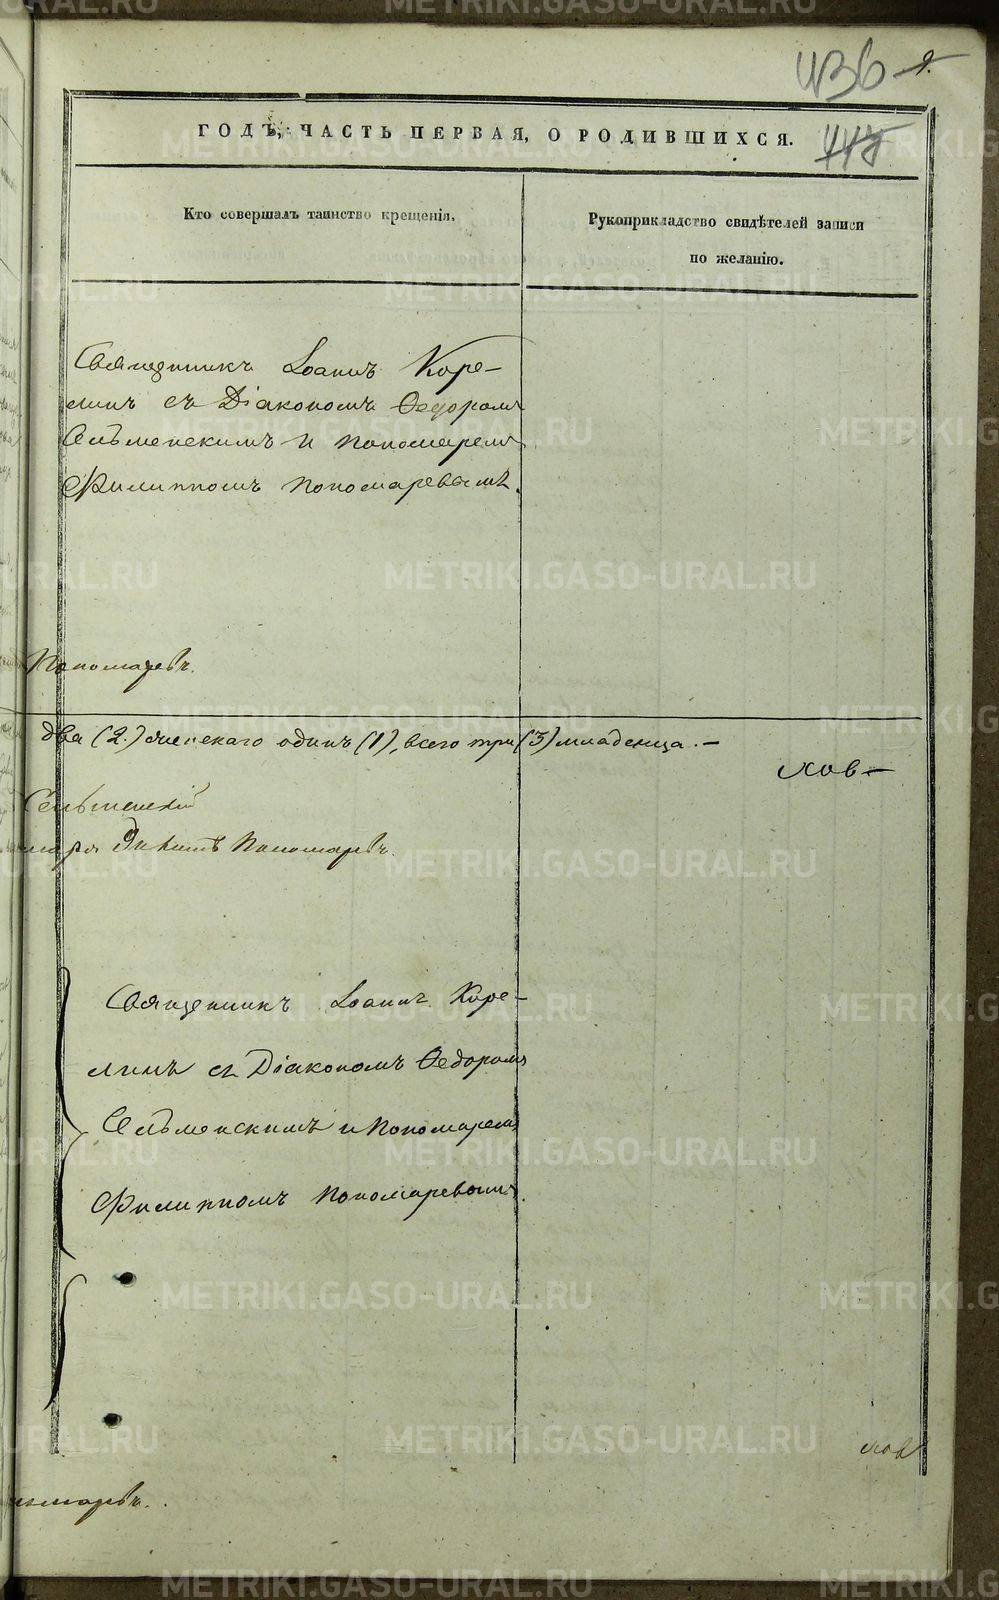 436
ГОДЪ, ЧАСТЬ ПЕРВАЯ, О РОДИВШИХСЯ.
Кто совершалъ таинство крещенія.
Рукоприкладство свидѣтелей записи
по желанію.
Священникъ Іоаннъ Коре-
линъ съ Діакономъ Ѳедоромъ
Сельменскимъ и пономаремъ
Филиппомъ Пономаревымъ.
Пономаревъ.
два (2.) женскаго одинъ (1), всего три (3) младенца. –
лов–
Сельменскій
Пономаревъ
Священникъ Іоаннъ Коре-
линъ съ Діакономъ Ѳедоромъ
Сельменскимъ и пономаремъ
Филиппомъ Пономаревымъ.
лов
номаревъ.
METRIKI.GASO-URAL.RU